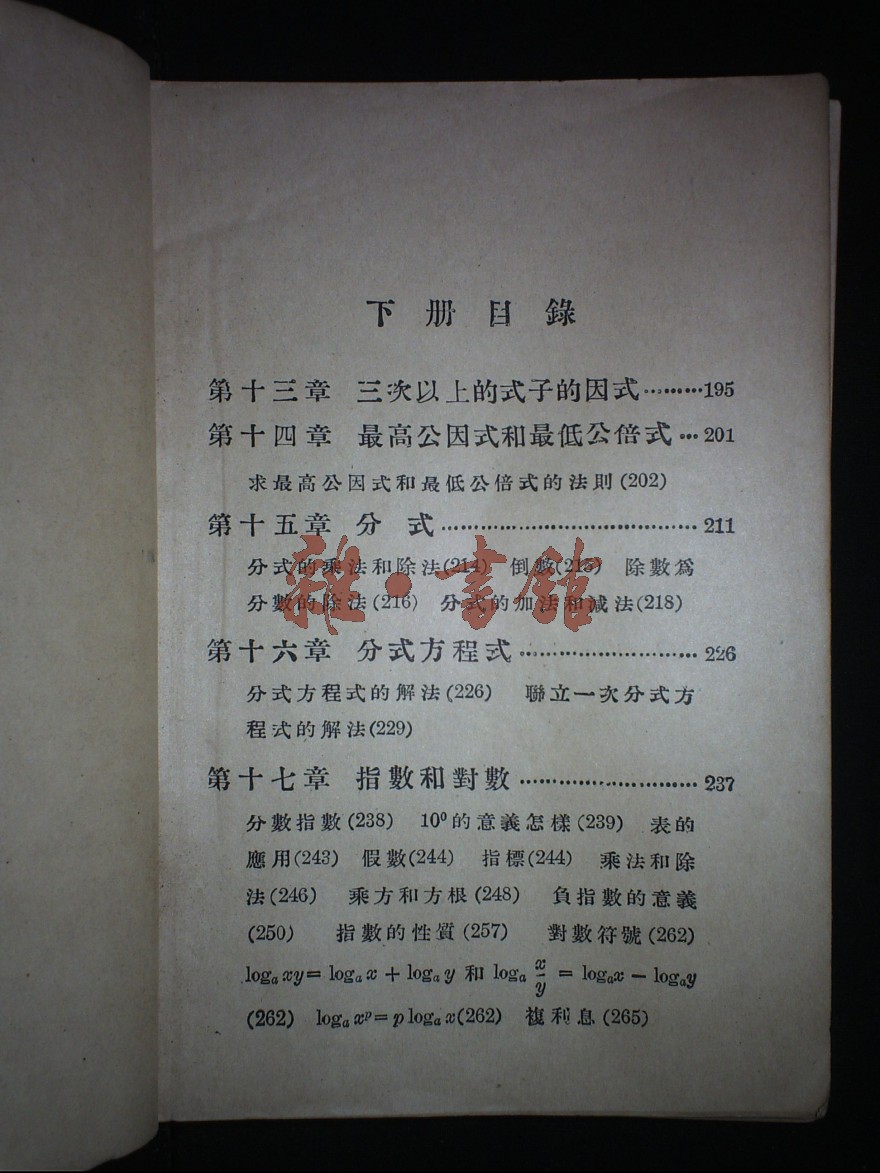 下册目錄
第十三章 三次以上的式子的因式………195
第十四章 最高公因式和最低公倍式…201
求最高公因式和最低公倍式的法則(202)
第十五章 分 式……………………………211
分式的乘法和除法(214) 倒數(215) 除數爲
分數的除法(216) 分式的加法和減法(218)
第十六章 分式方程式……………………226
分式方程式的解法(226) 聯立一次分式方
程式的解法(229)
第十七章 指數和對數……………………237
分數指數(238) 10⁰的意義怎樣(239) 表的
應用(243) 假數(244) 指標(244) 乘法和除
法(246) 乘方和方根(248) 負指數的意義
(250) 指數的性質(257) 對數符號(262)
logₐ xy = logₐ x + logₐ y 和 logₐ x/y = logₐx − logₐy
(262) logₐ xᵖ = p logₐ x(262) 複利息(265)
雜·書館